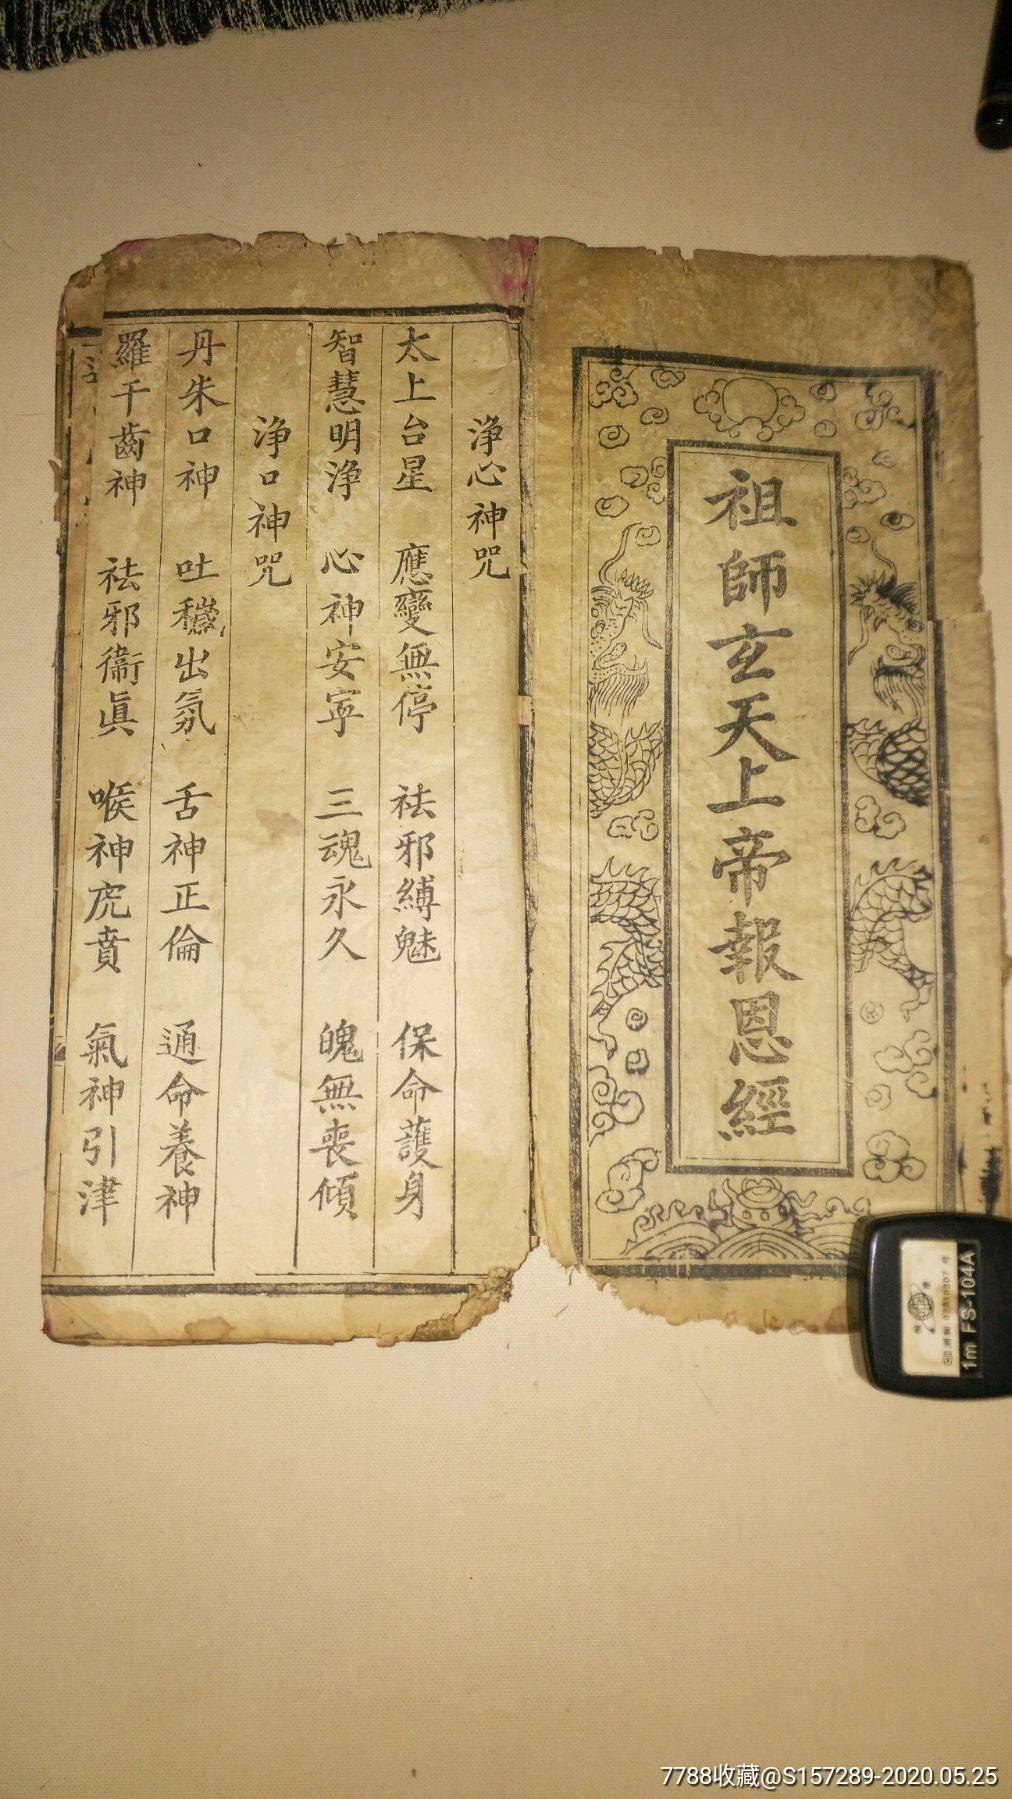 祖師玄天上帝報恩經
淨心神咒
太上台星 應變無停 祛邪縛魅 保命護身
智慧明淨 心神安寧 三魂永久 魄無喪傾
淨口神咒
丹朱口神 吐穢出氛 舌神正倫 通命養神
羅千齒神 祛邪衞眞 喉神虎賁 氣神引津
1m FS-104A
7788收藏@S157289-2020.05.25